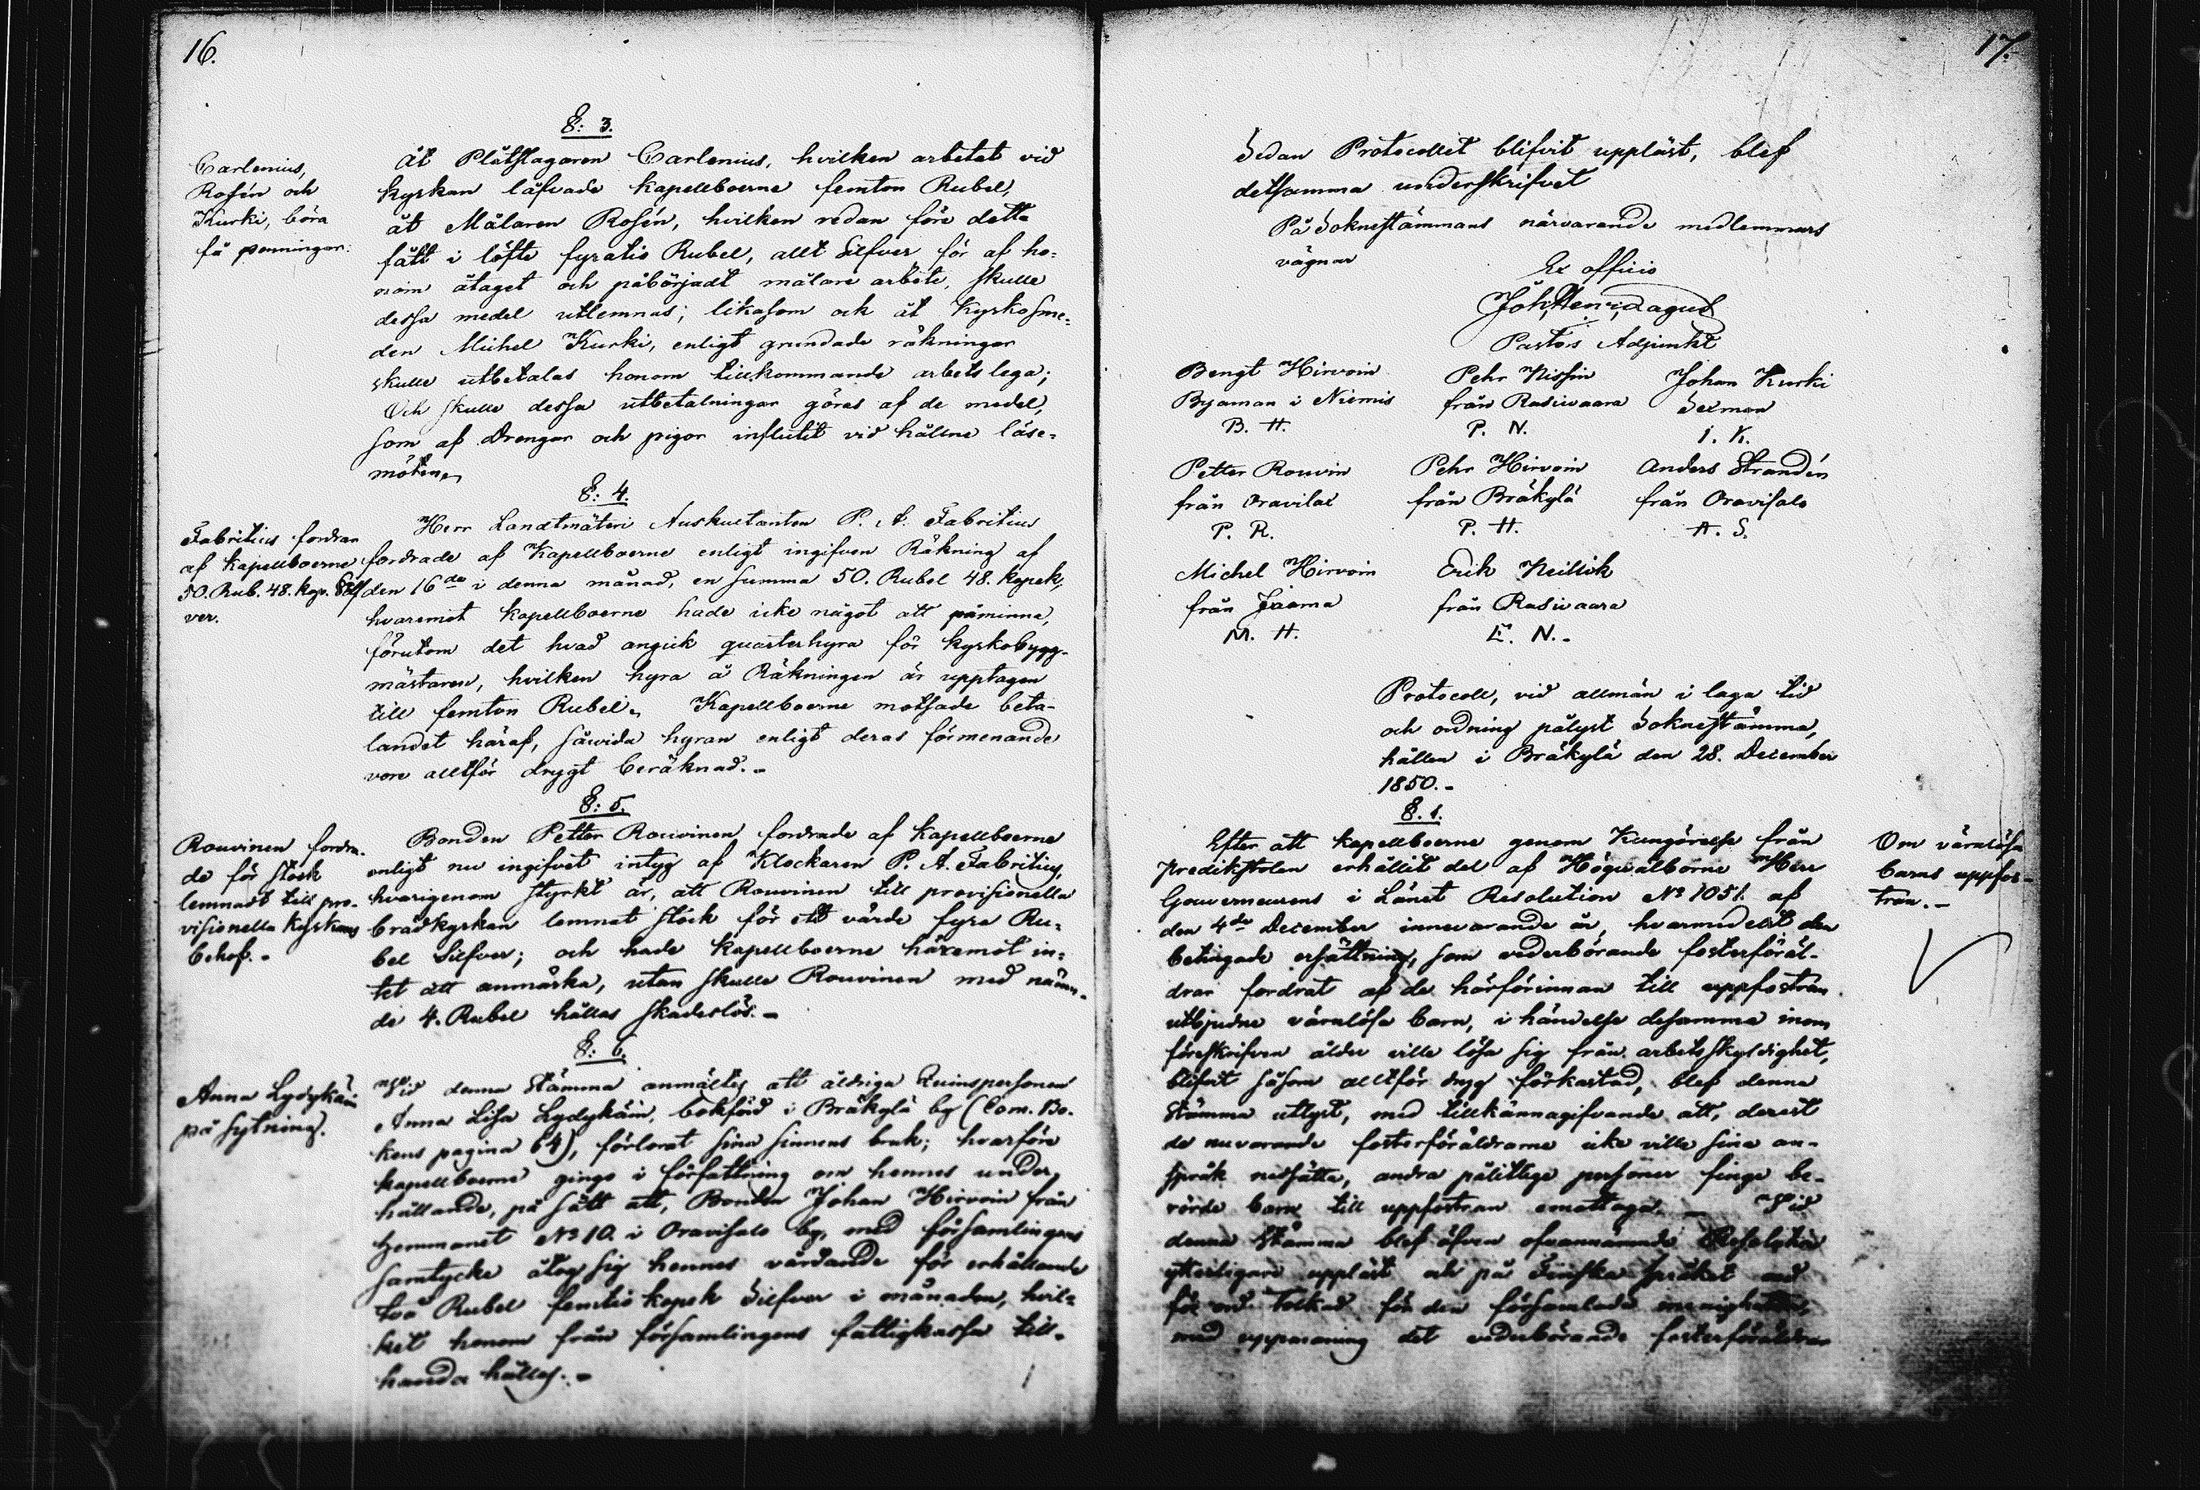 16.
§: 3.
Carlenius,
Rosén och
Kurki, böra
få penningar:
åt Plåtslagaren Carlenius, hvilken arbetat vid
kyrkan låfvade kapellboerne femton Rubel,
åt Målaren Rosén, hvilken redan före detta
fått i löfte fyratio Rubel, allt Silfver för af ho=
nom åtaget och påbörjadt målare arbete, skulle
dessa medel utlemnas; likasom ock åt Kyrkosme=
den Michel Kurki, enligt grundade räkningar
skulle utbetalas honom tillkommande arbets lega;
Och skulle dessa utbetalningar göras af de medel,
som af Drengar och pigor influtit vid hållne läse=
möten.
§: 4.
Fabritius fordran
af kapellboerne
50. Rub. 48. kop. Silf
ver.
Herr Landtmäteri Auskultanten P. A. Fabritius
fordrade af Kapellboerne enligt ingifven Räkning af
den 16de i denna månad, en summa 50. Rubel 48. kopek,
hvaremot kapellboerne hade icke något att påminna,
förutom det hvad angick quarterhyra för kyrkobygg-
mästaren, hvilken hyra å Räkningen är upptagen
till femton Rubel. Kapellboerne motsade beta-
landet häraf, såvida hyran enligt deras förmenande
vore alltför drygt beräknad.-
§: 5.
Rouvinen fordra-
de för stock
lemnadt till pro-
visionella kyrkans
behof.-
Bonden Petter Rouvinen fordrade af kapellboerne
enligt nu ingifvet intyg af Klockaren P. A. Fabritius,
hvarigenom styrkt är, att Rouvinen till provisionella
brädkyrkan lemnat stock för ett värde fyra Ru=
bel Silfver; och hade kapellboerne häremot in=
tet att anmärka, utan skulle Rouvinen med nämn-
de 4. Rubel hållas skadeslös.-
§: 6.
Anna Lydykäin
på sytning.
Vid denna Stämma anmältes att åldriga Quinspersonen
Anna Lisa Lydykäin, bokförd i Bråkylä by (Com. Bo-
kens pagina 64), förlorat sina sinnens bruk; hvarföre
kapellboerne gingo i författning om hennes under
hållande, på sätt att, Bonden Johan Hirvoin från
hemmanet No 10. i Oravisalo by, med församlingens
samtycke åtog sig hennes vårdande för erhållande
två Rubel femtio kopek Silfver i månaden, hvil=
ket honom från församlingens fattigkassa till-
handa hålles.-
17.
Sedan Protocollet blifvit uppläst, blef
detsamma underskrifvet
På Soknestämmans närvarande medlemmars
vägnar
Ex officio
Joh. Henr.
Pastors Adjunkt
Bengt Hirvoin Pehr Nissin Johan Kurki
Byaman i Niemis från Rasivaara Sexman
B. H. P. N. I. K.
Petter Rouvin Pehr Hirvoin Anders Strandén
från Oravilax från Bråkylä från Oravisalo
P. R. P. H. A. S.
Michel Hirvoin Erik
från Jaama från Rasivaara
M. H. E. N.-
Protocoll, vid allmän i laga tid
och ordning pålyst Soknestämma,
hållen i Bråkylä den 28. December
1850.-
§. 1.
Om värnlösa
barns uppfos-
tran.-
Efter att kapellboerne genom Kungörelse från
Predikstolen erhållit del af Högvälborne Herr
Gouverneurens i Länet Resolution No 1051. af
den 4de December innevarande år, hvarmedelst den
betingade ersättning, som vederbörande fosterföräl-
drar fordrat af de härförinnan till uppfostran
utbjudne värnlösa barn, i händelse desamma inom
föreskrifven ålder ville lösa sig från arbetsskyldighet,
blifvit såsom alltför dryg förkastad, blef denna
Stämma utlyst, med tillkännagifvande att, derest
de nuvarande fosterföräldrarne icke ville sina an-
språk nedsätta, andra pålitlige personer finge be-
rörde barn till uppfostran emottaga. — Vid
denna Stämma blef äfven ofvannämnde Resolution
ytterligare uppläst och på Finska språket ord
för ord tolkad för den församlade menigheten,
med uppmaning det vederbörande fosterföräldrar